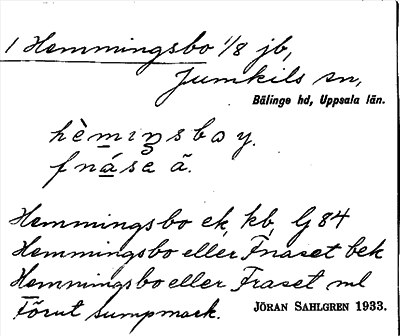 1 Hemmingsbo 1/8 jb,
Jumkils sn,
Bälinge hd, Uppsala län.
hèmıŋsbωy.
fnásɛ ā.
Hemmingsbo ek, kb, Lj 84
Hemmingsbo eller Fnaset bek
Hemmingsbo eller Fraset ml
Förut sumpmark. JÖRAN SAHLGREN 1933.